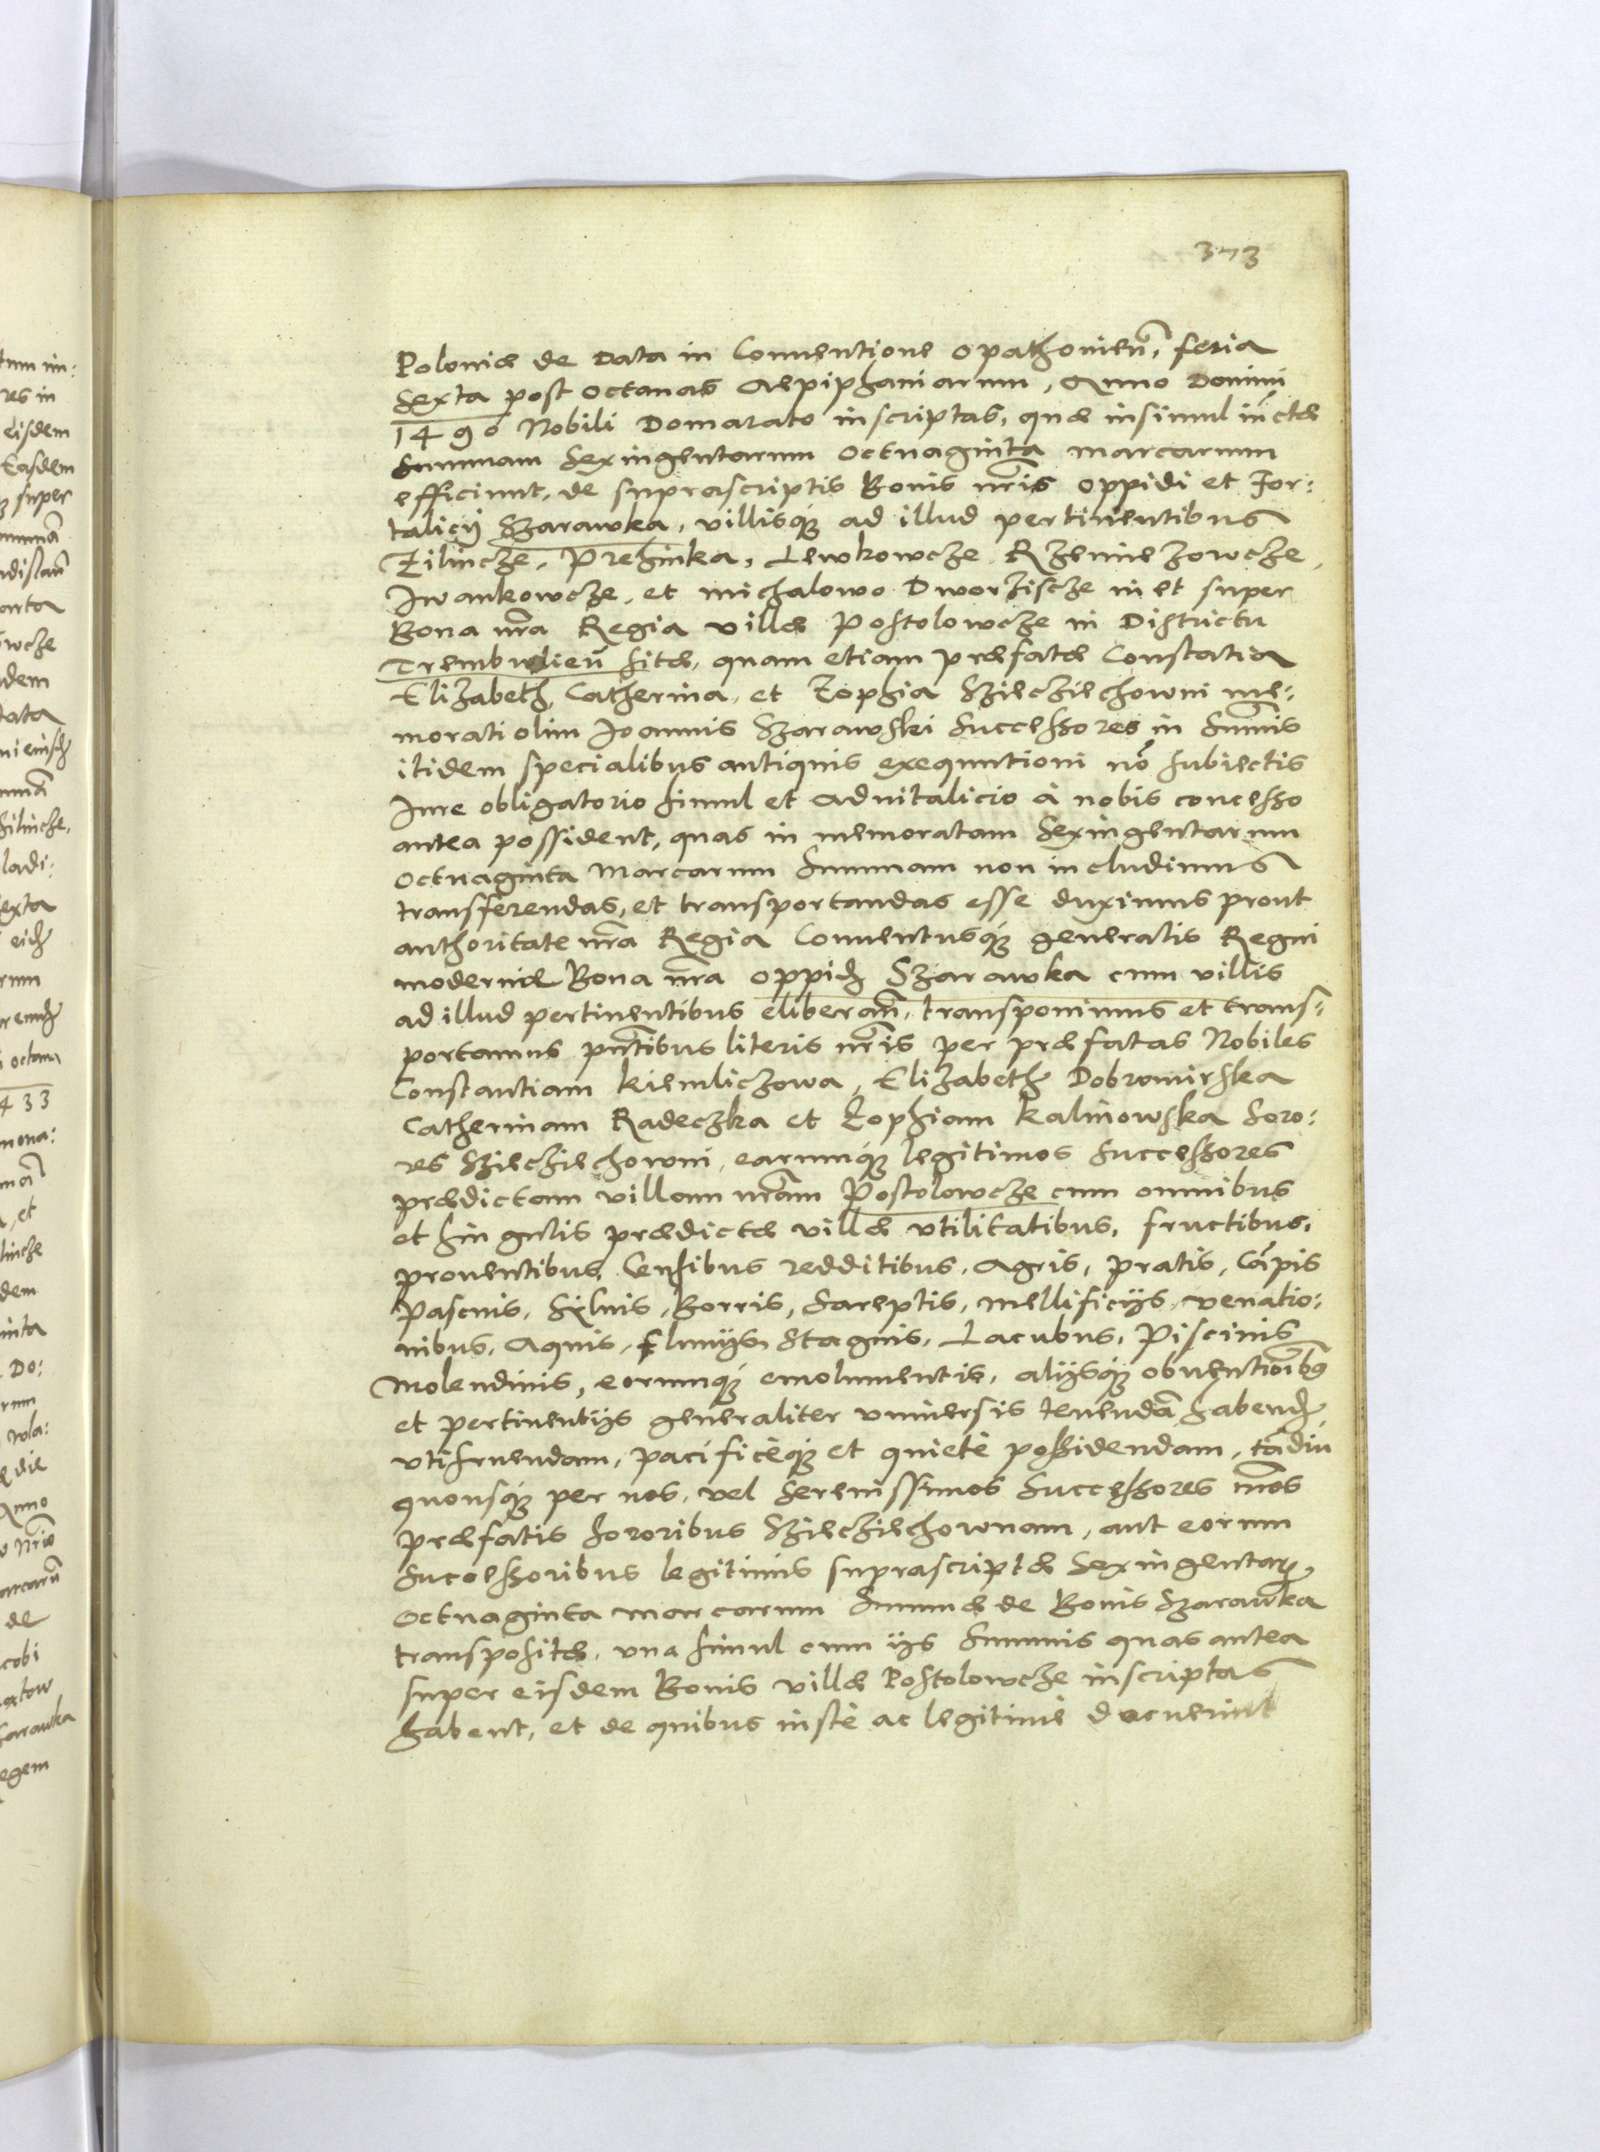 373
Poloniæ de Data in Conuentione Opathouien̄, feria
Sexta post Octauas Aepiphaniarum, Anno Domini
1490 Nobili Domarato inscriptas, quæ insimul iūctæ
Summam Sexingentarum Octuaginta marcarum
efficiunt, de suprascriptis Bonis nr̄is oppidi et For:
talicij Szarawka, villisq́ ad illud pertinentibus
Zilincze, Prehinka, Lewkowcze Rzemiezowcze,
Iwankowcze, et Michalowo Dworziscze in et super
Bona nr̄a Regia villæ Postolowcze in Districtu
Trembwlieñ sitæ, quam etiam præfatæ Constatia
Elizabeth, Catherina, et Zophia Sziecziechowni me:
morati olim Ioannis Szarawski Successores in Sum̄is
itidem specialibus antiquis exequutioni nō subiectis
Iure obligatorio simul et aduitalicio à nobis concesso
antea possident, quas in memoratam Sexingentarum
Octuaginta Marcarum Summam non includimus
transferendas, et transportandas esse duximus prout
authoritate nr̄a Regia Conuentusq́ generalis Regni
moderni Bona nr̄a oppid Szarawka cum villis
ad illud pertinentibus eliberam̄, transponimus et trans-
portamus pn̄tibus literis nr̄is per præfatas Nobiles
Constantiam Kiemliczowa, Elizabeth Dobromirska
Catherinam Radeczka et Zophiam Kalinowska Soro:
res Sziecziechowni, earumq́ legitimos Successores
prædictam villam nr̄am Postolowcze cum omnibus
et singulis prædictæ villæ vtilitatibus, fructibus,
prouentibus, Censibus redditibus, Agris, pratis, Cāpis
Pascuis, Syluis, Borris, Sareptis, Mellificijs, venatio:
nibus, Aquis, Fluuijs, Stagnis, Lacubus, Piscinis
Molendinis, eorumq́ emolumentis, alijsq́ obuentionib9
et pertinentijs generaliter vniuersis tenendā habend
vtifruendam, pacificèq́ et quietè possidendam, tādiu
quousq́ per nos, vel Serenissimos Successores nr̄os
præfatis Sororibus Sziecziechownam, aut eorum
Successoribus legitimis suprascriptæ Sexingentar
Octuaginta marcarum Summæ de Bonis Szarawka
transpositæ, vna simul cum ijs Summis quas antea
super eisdem Bonis villæ Postolowcze inscriptas
habent, et de quibus iustè ac legitimè docuerint